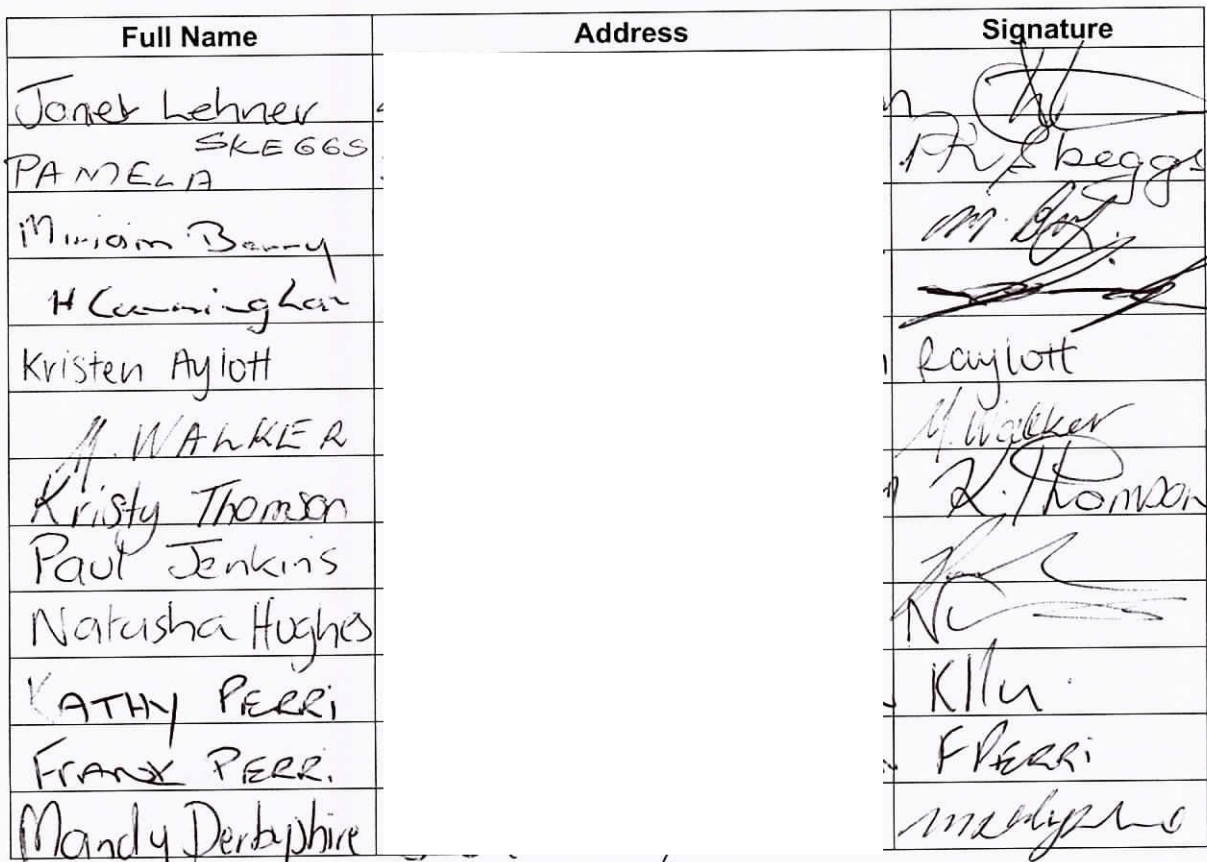 Full Name Address Signature
Janet Lehner
SKEGGS
PAMELA PK Skeggs
Miriam Barry M.
H Cunningham
Kristen Aylott Kaylott
M. WALKER M. Walker
Kristy Thomson K. Thomson
Paul Jenkins
Natasha Hughes
KATHY PERRI
FRANK PERRI F PERRI
Mandy Derbyshire